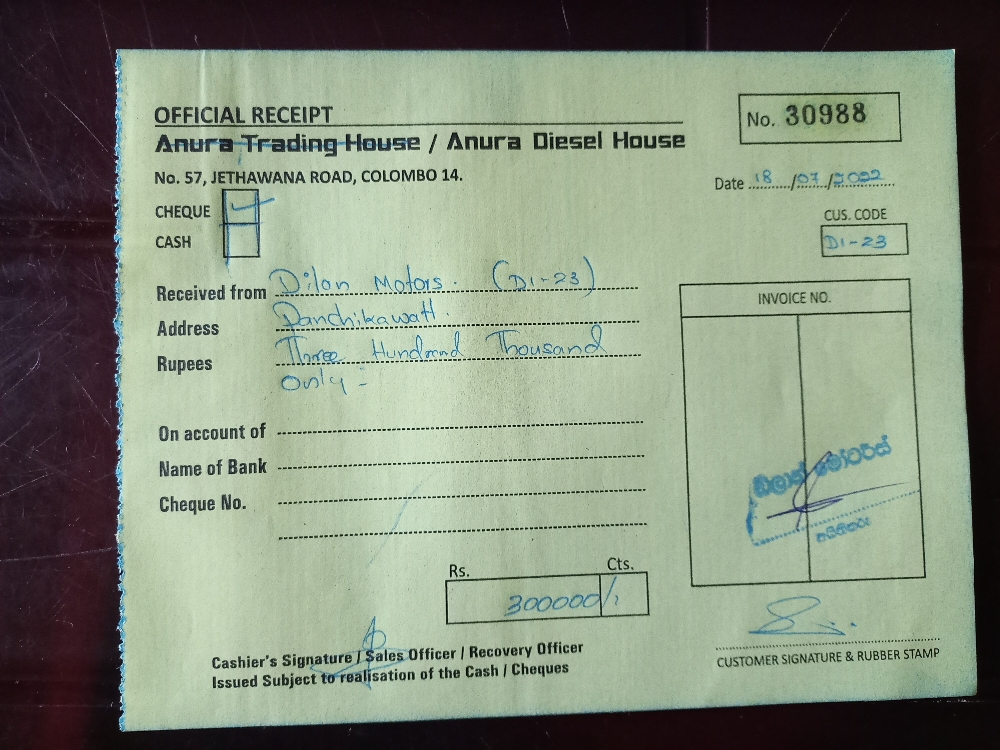 OFFICIAL RECEIPT
Anura Trading House / Anura Diesel House
No. 30988
No. 57, JETHAWANA ROAD, COLOMBO 14.
Date 18/07/2022
CHEQUE
CASH
CUS. CODE
D1-23
Received from Dilan Motors. (D1-23)
Address Panchikawatt.
Rupees Three Hundred Thousand
only =
INVOICE NO.
On account of
Name of Bank
Cheque No.
ඩිලාන් මෝටර්ස්
Rs. Cts.
300000/
Cashier's Signature / Sales Officer / Recovery Officer
Issued Subject to realisation of the Cash / Cheques
CUSTOMER SIGNATURE & RUBBER STAMP